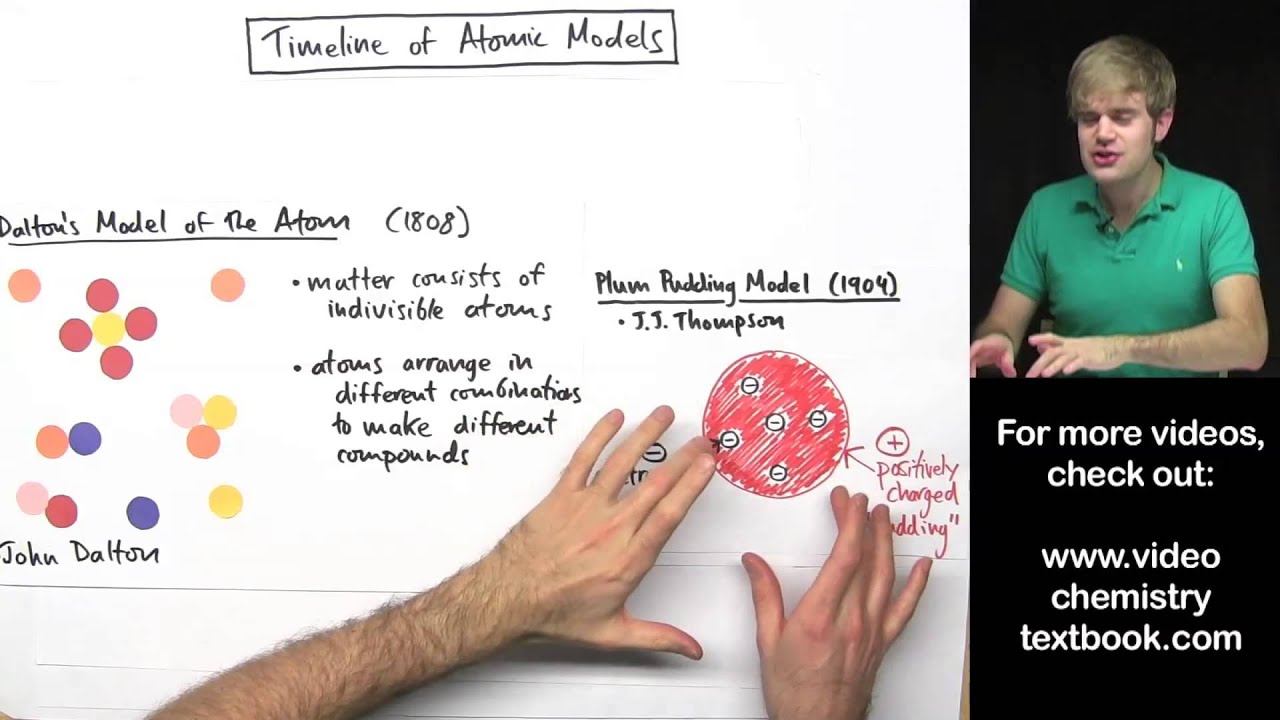 Timeline of Atomic Models
Dalton's Model of the Atom (1808)
• matter consists of
indivisible atoms
• atoms arrange in
different combinations
to make different
compounds
John Dalton
Plum Pudding Model (1904)
• J.J. Thompson
positively
charged
For more videos,
check out:
www.video
chemistry
textbook.com